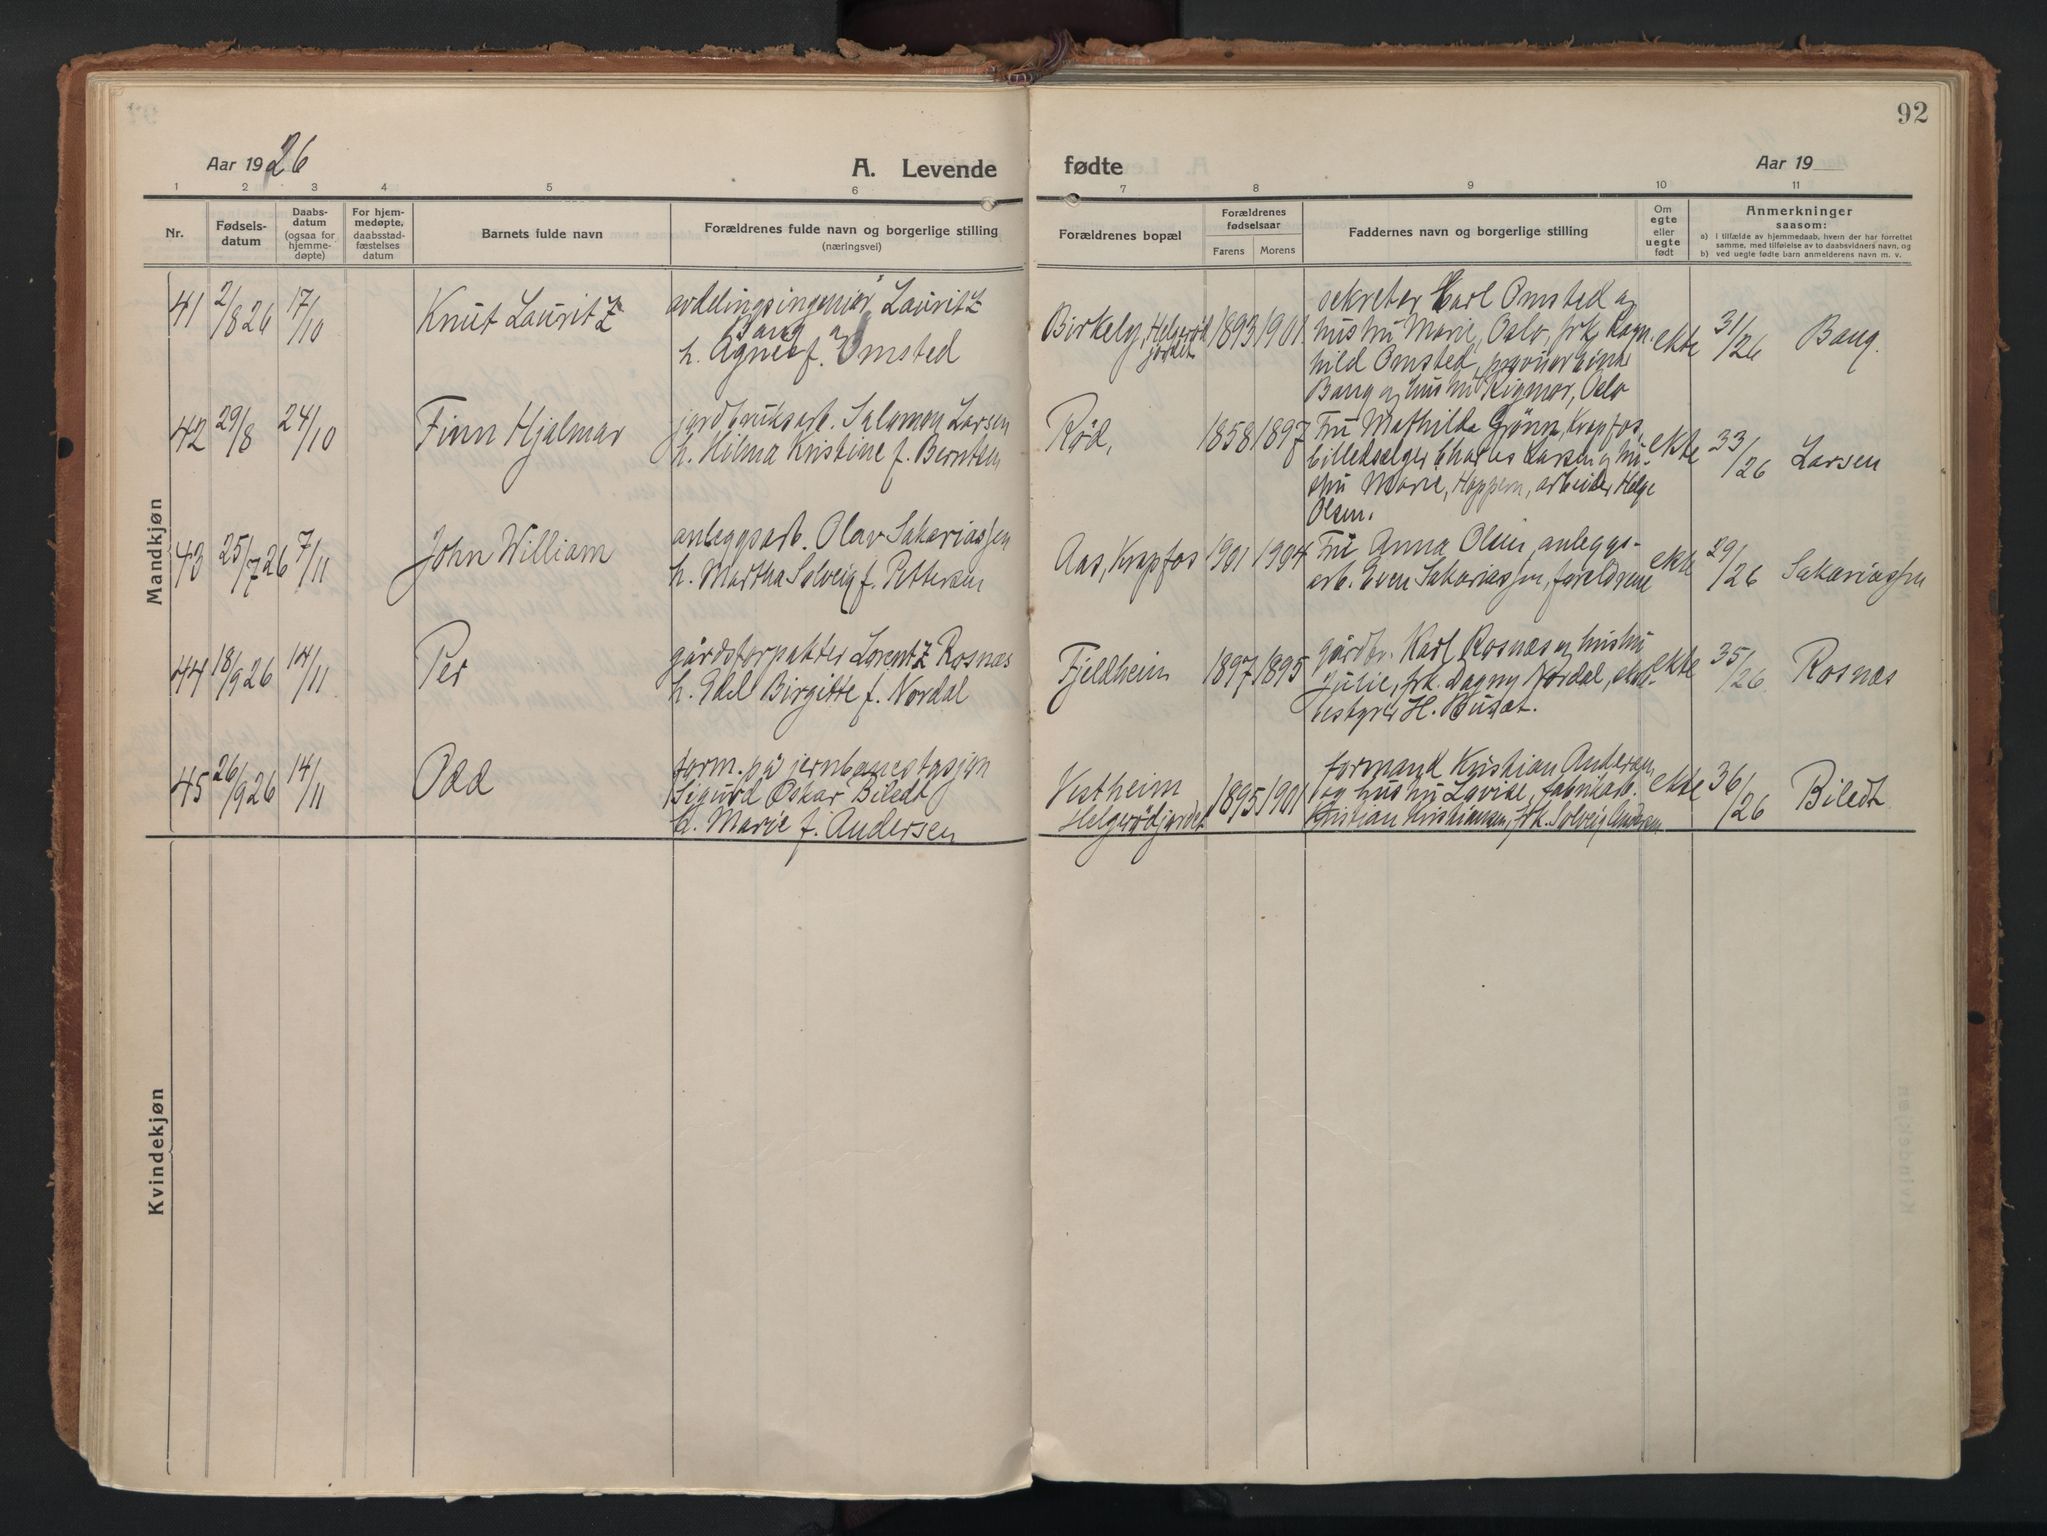 92
Aar 1926
A. Levende
fødte
Aar 19
1 2 3 4 5 6 7 8 9 10 11
Nr.
Fødsels-
datum
Daabs-
datum
(ogsaa for
hjemme-
døpte)
For hjem-
medøpte,
daabsstad-
fæstelses
datum
Barnets fulde navn
Forældrenes fulde navn og borgerlige stilling
(næringsvei)
Forældrenes bopæl
Forældrenes
fødselsaar
Farens Morens
Faddernes navn og borgerlige stilling
Om
egte
eller
uegte
født
Anmerkninger
saasom:
a) i tilfælde av hjemmedaab, hvem der har forrettet
samme, med tilføielse av to daabsvidners navn, og
b) ved uegte fødte barn anmelderens navn m. v.
Mandkjøn
41 2/8 26 17/10 Knut Lauritz
avdelingsingeniør Lauritz
Bang og
h. Agnes f. Omsted
Birkely, Helgerød
jordet
1893 1901
sekretær Carl Omsted og
hustru Marie, Oslo, frk. Ragn-
hild Omsted,
Bang og hustru Rigmor, Oslo
ekte 31/26 Bang.
42 29/8 24/10 Finn Hjalmar
jordbruksarb. Salomon Larsen
h. Hilma Kristine f. Berntsen
Rød,
1858 1897
Fru Mathilde Grönn, Krapfos,
billedsælger Charles Larsen og hu-
stru Marie, Hoppern, arbeider Helge
Olsen.
ekte 33/26 Larsen
43 25/7 26 7/11 John William
anleggsarb. Olav Sakariassen
h. Martha Solveig f. Pettersen
Aas, Krapfos
1901 1904
Fru Anna Olsen, anleggs-
arb. Even Sakariassen, foreldrene
ekte 29/26 Sakariassen
44 18/9 26 14/11 Per
gårdsforpakter Lorentz Rosnæs
h. Edel Birgitte f. Nordal
Fjeldheim
1897 1895
gårdbr. Karl Rosnæs og hustru
Julie, frk. Dagny Nordal, skole-
bestyrer H.
ekte 35/26 Rosnæs
45 26/9 26 14/11 Odd
form. på jernbanestasjon
Sigurd Oskar Biledt
h. Marie f. Andersen
Vestheim
Helgerødjordet
1895 1901
formand Kristian Andersen
og hustru Lovise, fabrikarb.
Kristian Kristiansen, frk. Solveig Andersen
ekte 36/26 Biledt
Kvindekjøn